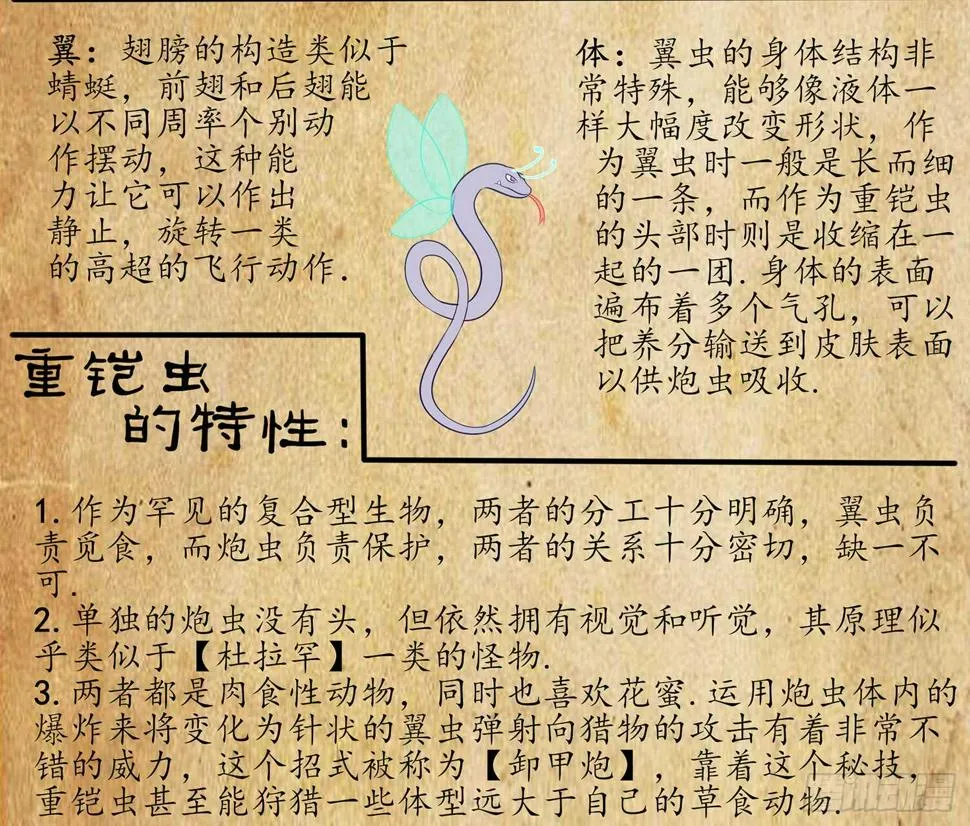 翼：翅膀的构造类似于
蜻蜓，前翅和后翅能
以不同周率个别动
作摆动，这种能
力让它可以作出
静止，旋转一类
的高超的飞行动作.
体：翼虫的身体结构非
常特殊，能够像液体一
样大幅度改变形状，作
为翼虫时一般是长而细
的一条，而作为重铠虫
的头部时则是收缩在一
起的一团.身体的表面
遍布着多个气孔，可以
把养分输送到皮肤表面
以供炮虫吸收.
重铠虫
的特性：
1.作为罕见的复合型生物，两者的分工十分明确，翼虫负
责觅食，而炮虫负责保护，两者的关系十分密切，缺一不
可.
2.单独的炮虫没有头，但依然拥有视觉和听觉，其原理似
乎类似于【杜拉罕】一类的怪物.
3.两者都是肉食性动物，同时也喜欢花蜜.运用炮虫体内的
爆炸来将变化为针状的翼虫弹射向猎物的攻击有着非常不
错的威力，这个招式被称为【卸甲炮】，靠着这个秘技，
重铠虫甚至能狩猎一些体型远大于自己的草食动物.